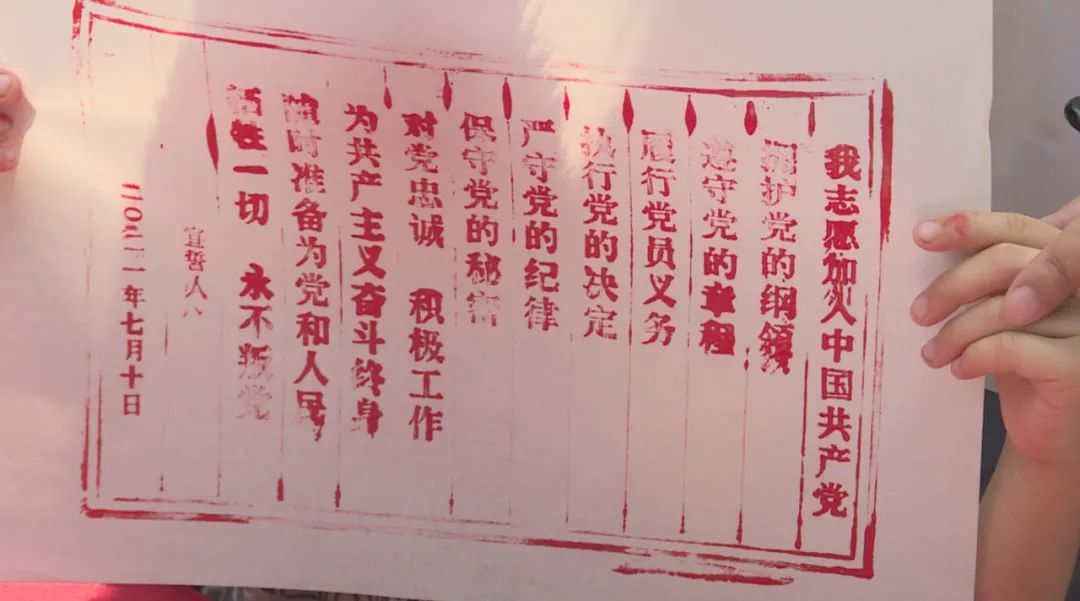 我志愿加入中国共产党
拥护党的纲领
遵守党的章程
履行党员义务
执行党的决定
严守党的纪律
保守党的秘密
对党忠诚 积极工作
为共产主义奋斗终身
随时准备为党和人民
牺牲一切 永不叛党
宣誓人
二〇二一年七月十日